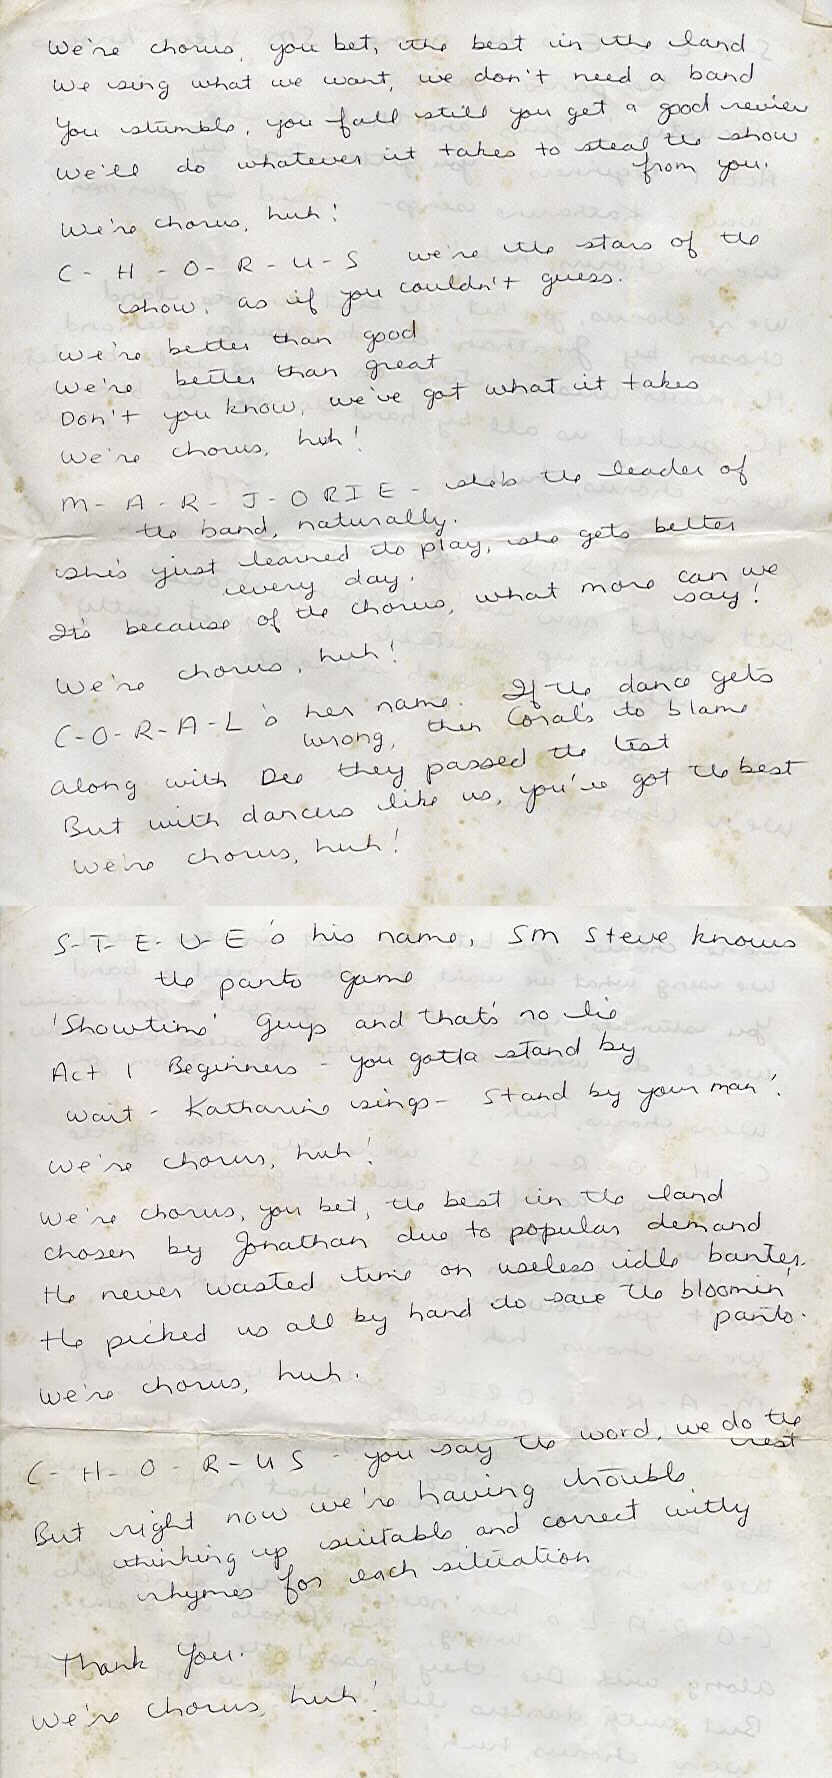 We're chorus, you bet, the best in the land
We sing what we want, we don't need a band
You stumble, you fall still you get a good review
We'll do whatever it takes to steal the show
from you.
We're chorus, huh!
C - H - O - R - U - S we're the stars of the
show, as if you couldn't guess.
We're better than good
We're better than great
Don't you know, we've got what it takes
We're chorus, huh!
M - A - R - J - O R I E - she's the leader of
the band, naturally.
She's just learned to play, she gets better
every day.
It's because of the chorus, what more can we
say!
We're chorus, huh!
C - O - R - A - L 's her name. If the dance gets
wrong, then Coral's to blame
Along with Dee they passed the test
But with dancers like us, you've got the best
We're chorus, huh!
S - T - E - V - E 's his name, SM Steve knows
the panto game
'Showtime' Guys and that's no lie
Act 1 Beginners - you gotta stand by
Wait - Katharine sings - Stand by your man!
We're chorus, huh!
We're chorus, you bet, the best in the land
Chosen by Jonathan due to popular demand
He never wasted time on useless idle banter.
He picked us all by hand to save the bloomin'
panto.
We're chorus, huh.
C - H - O - R - U S - you say the word, we do the
rest
But right now we're having trouble
thinking up suitable and correct witty
rhymes for each situation
Thank You.
We're chorus, huh!